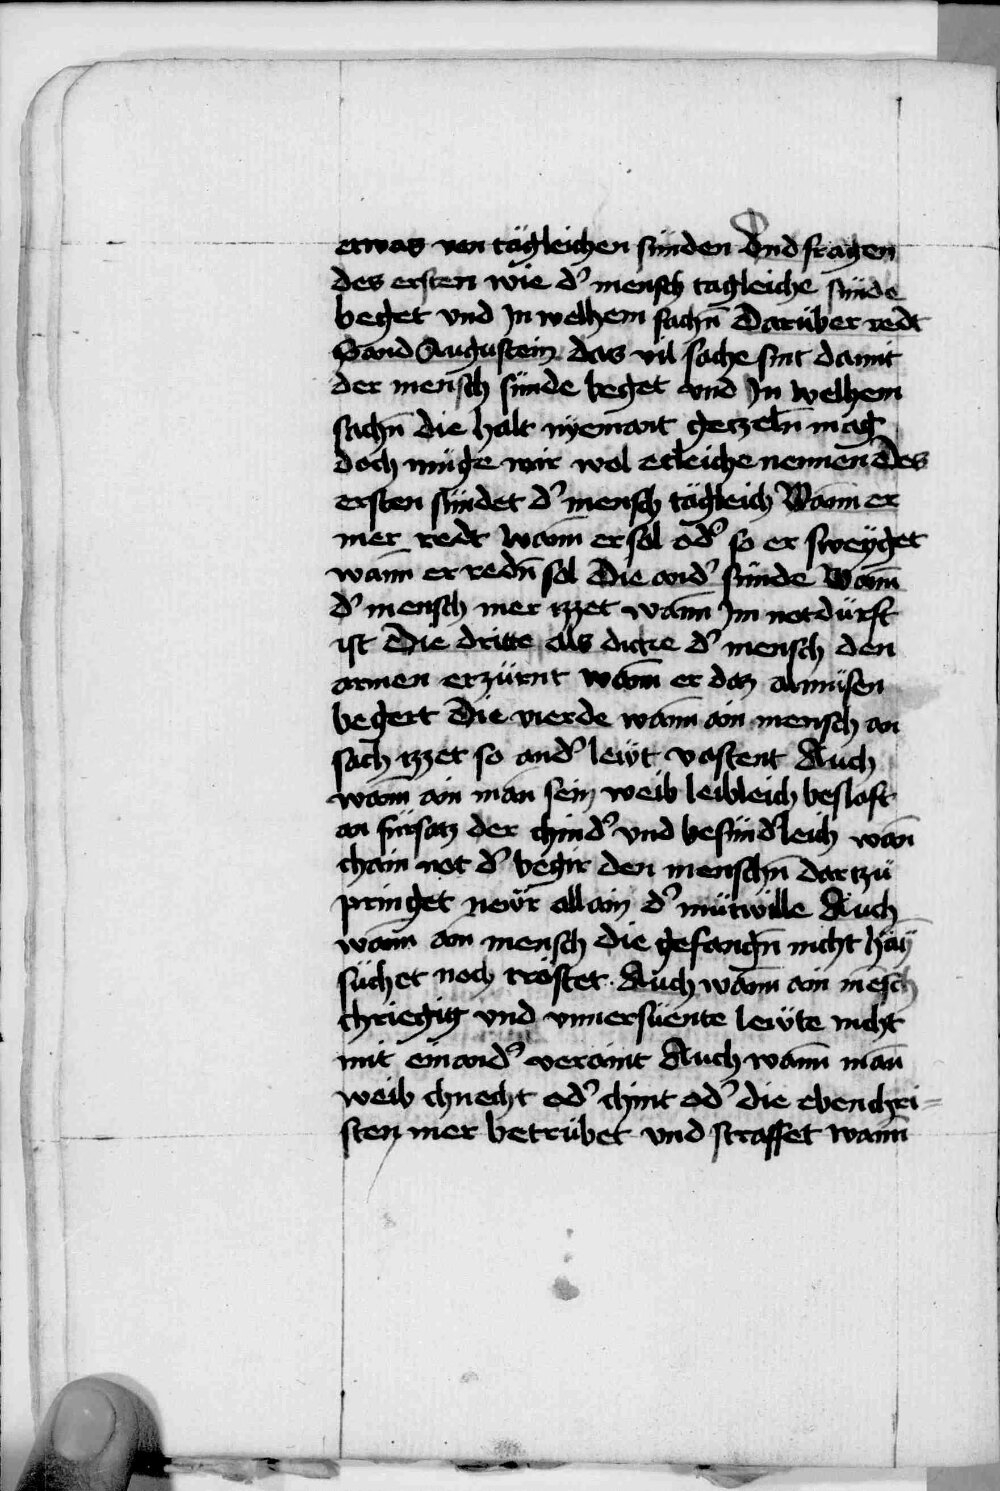 etwas von tägleichen sünden Vnd fragen
des ersten wie d' mensch tagleiche sünde
beget vnd In welhem sachn̄ Darüber redt
Sand Augustein das vil sache sint damit
der mensch sünde beget vnd In welhem
sachn̄ die halt nyemant getzeln̄ mag
doch müge wir wol etleiche nennen Des
ersten sündet d' mensch tägleich Wann̄ er
mer redt wann̄ er sol od' so er sweyget
wann̄ er redn̄ sol Die and' sünde Wann̄
d' mensch mer izzet wann̄ Im notdürft
ist Die dritte als dicke d' mensch den
armen erzürnt wann̄ er daz almüsen
begert Die vierde wann̄ ain mensch an
sach izzet so and' leẅt vastent Auch
wann̄ ain man sein weib leibleich beslaft
an fürsatz der chind' vnd besünd'leich wan̄
chain not d' begir den menschn̄ dartzü
pringet newr allain d' mütwille Auch
wann̄ ain mensch die gefangn̄ nicht hay̅
süchet noch tröstet. Auch wann̄ ain me̅sch
chriegig vnd vnuersüente leẅte nicht
mit einand' veraint Auch wann̄ man̄
weib chnecht od' chint od' die ebenchri=
sten mer betrübet vnd straffet wann̄